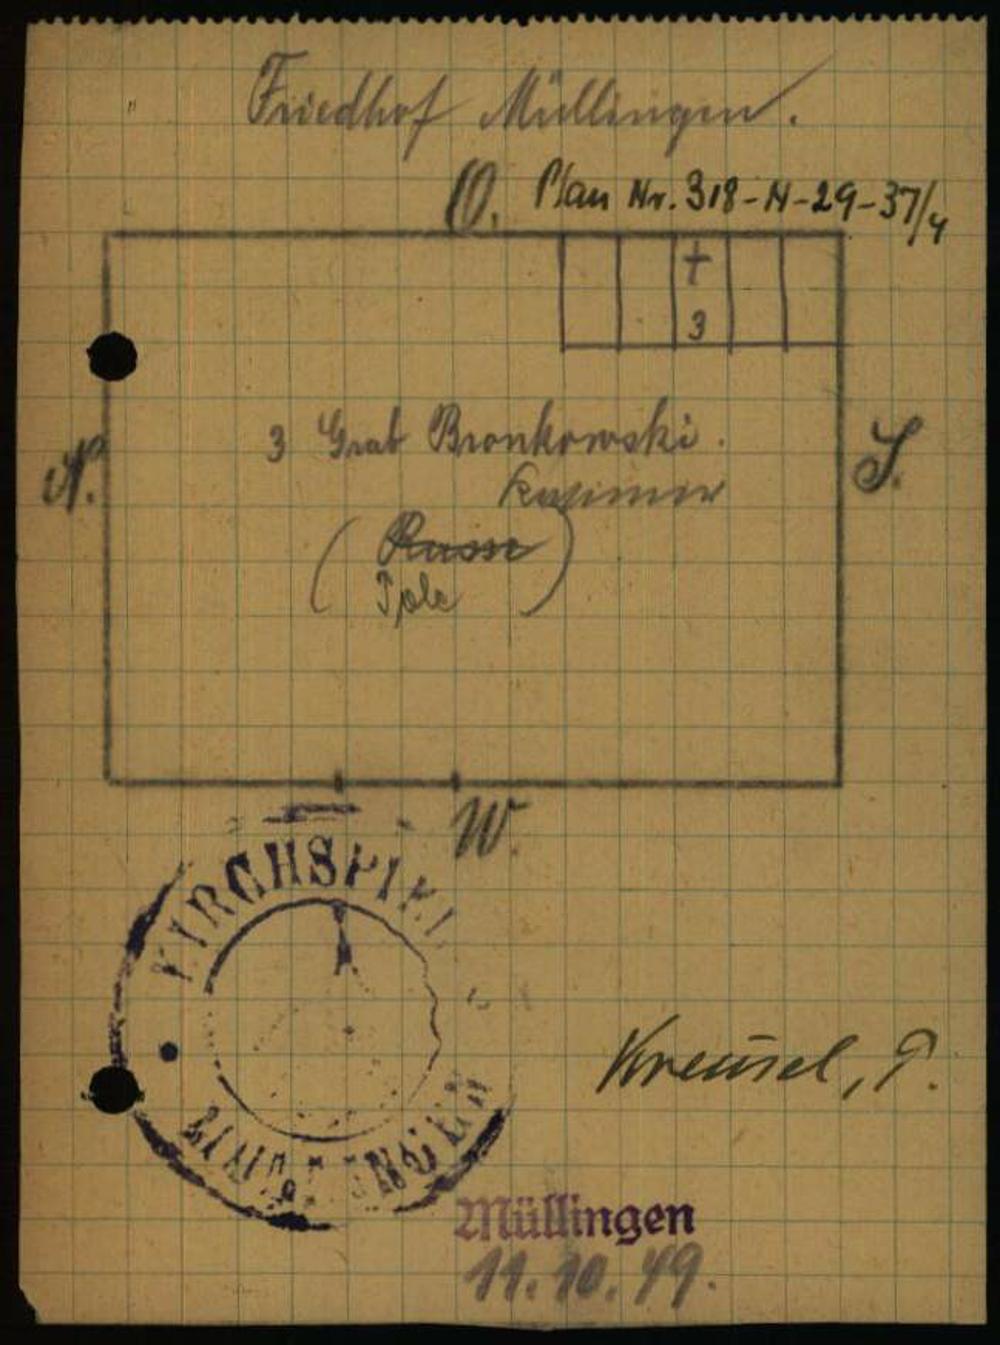 Friedhof Müllingen.
O. Plan Nr. 318-H-29-37/4
†
3
N.
S.
3 Grab Bronkowski.
Kasimir
(Russe)
Pole
W.
KIRCHSPIEL
Kreusel, P.
Müllingen
11.10.49.